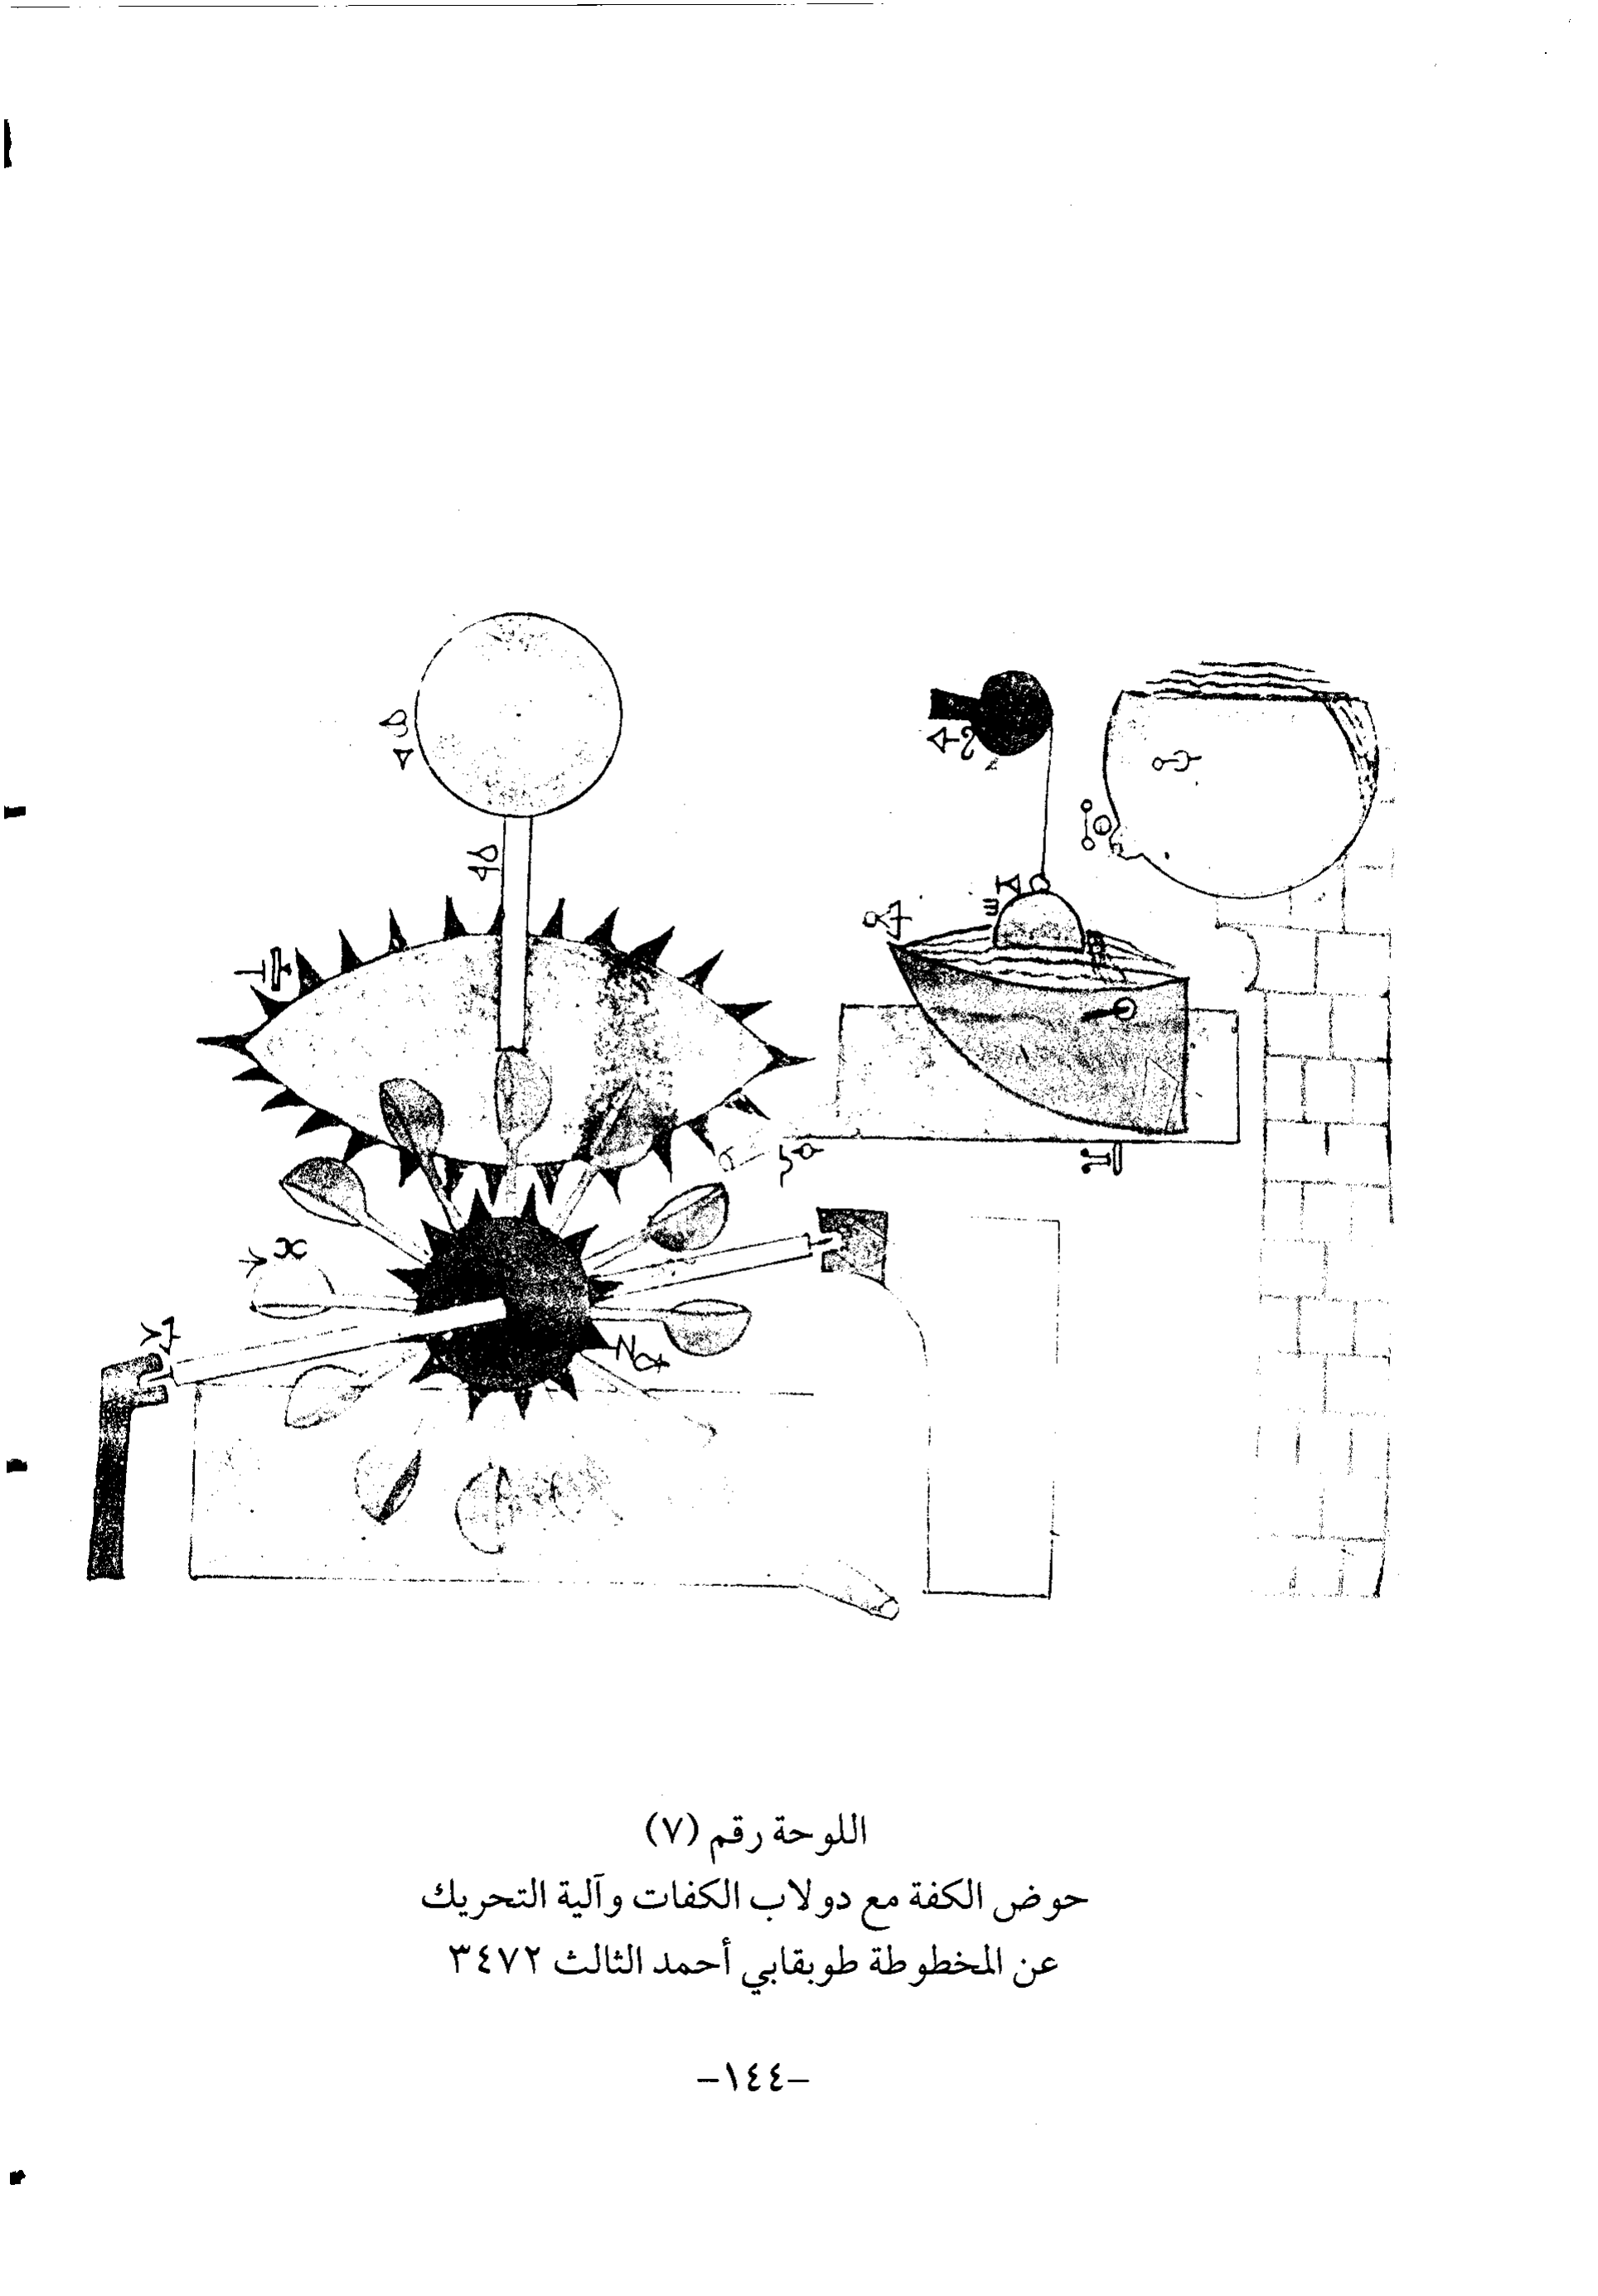 اللوحة رقم (٧)
حوض الكفة مع دولاب الكفات وآلية التحريك
عن المخطوطة طوبقابي أحمد الثالث ٣٤٧٢
–١٤٤–